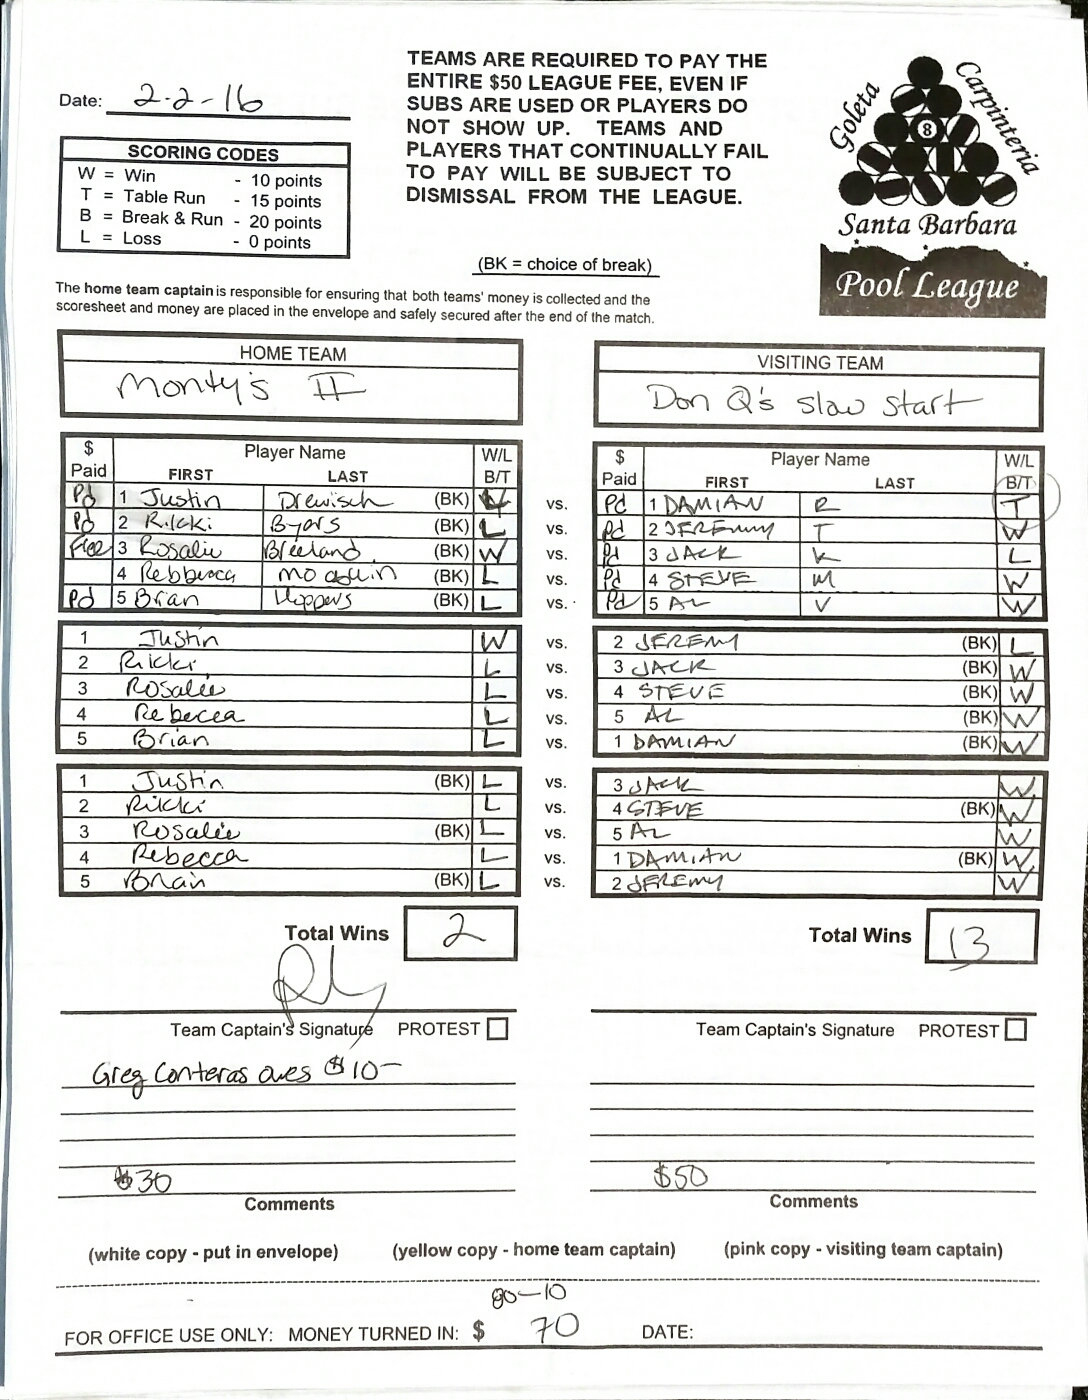 Date: 2-2-16
TEAMS ARE REQUIRED TO PAY THE
ENTIRE $50 LEAGUE FEE, EVEN IF
SUBS ARE USED OR PLAYERS DO
NOT SHOW UP. TEAMS AND
PLAYERS THAT CONTINUALLY FAIL
TO PAY WILL BE SUBJECT TO
DISMISSAL FROM THE LEAGUE.
Goleta
8
Carpinteria
Santa Barbara
Pool League
SCORING CODES
W = Win - 10 points
T = Table Run - 15 points
B = Break & Run - 20 points
L = Loss - 0 points
(BK = choice of break)
The home team captain is responsible for ensuring that both teams' money is collected and the
scoresheet and money are placed in the envelope and safely secured after the end of the match.
HOME TEAM
Monty's II
VISITING TEAM
Don Q's slow start
$ Paid Player Name FIRST LAST W/L B/T
$ Paid Player Name FIRST LAST W/L B/T
Pd 1 Justin Drewisch (BK) vs. Pd 1 DAMIAN R T
Pd 2 Rikki Byars (BK) L vs. Pd 2 JEREMMY T W
3 Rosalie Breeland (BK) W vs. Pd 3 JACK K L
4 Rebbecca (BK) L vs. Pd 4 STEVE M W
Pd 5 Brian (BK) L vs. Pd 5 AL V W
1 Justin W vs. 2 JEREMY (BK) L
2 Rikki L vs. 3 JACK (BK) W
3 Rosalie L vs. 4 STEVE (BK) W
4 Rebecca L vs. 5 AL (BK) W
5 Brian L vs. 1 DAMIAN (BK) W
1 Justin (BK) L vs. 3 JACK W
2 Rikki L vs. 4 STEVE (BK) W
3 Rosalie (BK) L vs. 5 AL W
4 Rebecca L vs. 1 DAMIAN (BK) W
5 Brian (BK) L vs. 2 JEREMY W
Total Wins 2
Total Wins 13
Team Captain's Signature PROTEST
Team Captain's Signature PROTEST
Greg Conteras owes $10-
$30
$50
Comments
Comments
(white copy - put in envelope) (yellow copy - home team captain) (pink copy - visiting team captain)
80-10
FOR OFFICE USE ONLY: MONEY TURNED IN: $ 70 DATE: